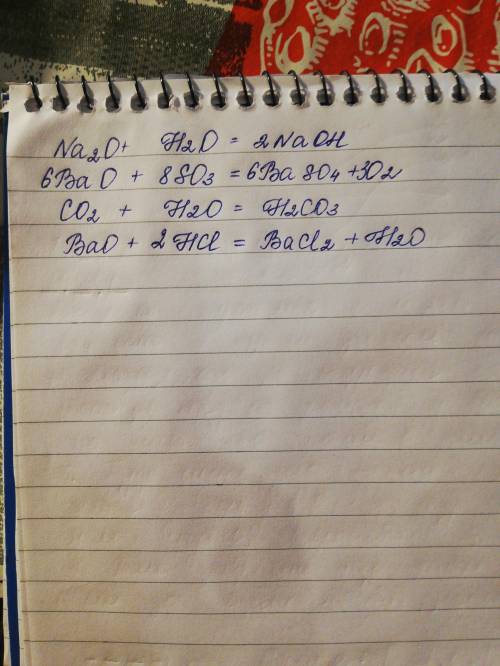 Na2O + H2O = 2NaOH
6BaO + 8SO3 = 6BaSO4 + 3O2
CO2 + H2O = H2CO3
BaO + 2HCl = BaCl2 + H2O